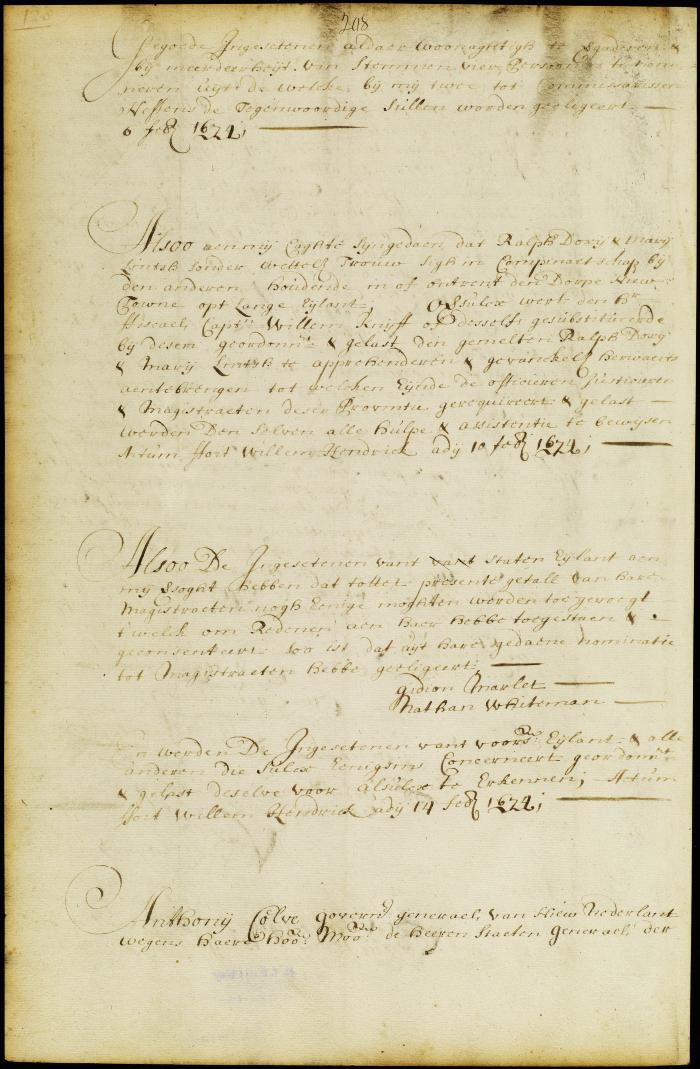 128
208
gegoede Ingesetenen aldaer woonaghtigh te
bij meerderheijt van stemmen vier Persoonen te nomi¬
neren uijt de welcke bij mij twee tot Commissarissen
Neffens de Tegenwoordige Sullen worden geeligeert
6 feb 1674;
Alsoo aen mij Claghte sijn gedaen dat Ralph Doxij & Mary
Lintsh sonder wettelf Trouw sigh in Compinaetschap bij
den anderen houdende in of ontrent den Dorpe Niew
Towne opt Lange Eijlant
Soo Sulcx wert den Hr
ffiscael Captn Willem Knijff off desselfs gesubstitueerde
bij desem geordonnt & gelast den gemelten Ralph Doxij
& Marij Lintsh te apprehenderen & gevanckelf herwaerts
aen te brengen tot welcken Eijnde de officieren Justitiaren
& Magistraeten deser Provintie gerequireert & gelast
worden Den selven alle hulpe & assistentie te bewijsen
Actum ffort Willem Hendrick adij 10 feb 1674;
Alsoo De Ingesetenen vant vant Staten Eijlant aen
mij Versoght hebben dat tottet presente getall van hare
Magistraeten nogh Eenige moghten worden toegevoegt
t welck om Redenen aen haer hebbe toegestaen &
geconsenteert soo ist dat uijt hare gedaene nominatie
tot Magistraeten hebbe geeligeert
Gidion Marlet
Nathan Whiteman
En werden De Ingesetenen vant voors: Eijlant & alle
anderen die sulcx Eenigsins Concerneert geordonnt
& gelast deselve voor alsulcx te Erkennen; Actum
ffort Willem Hendrick adij 14 feb 1674;
Anthonij Colve Governr generael van Niew Nederlant
wegens haere Hoo: Moo: de Heeren Staeten Generael der